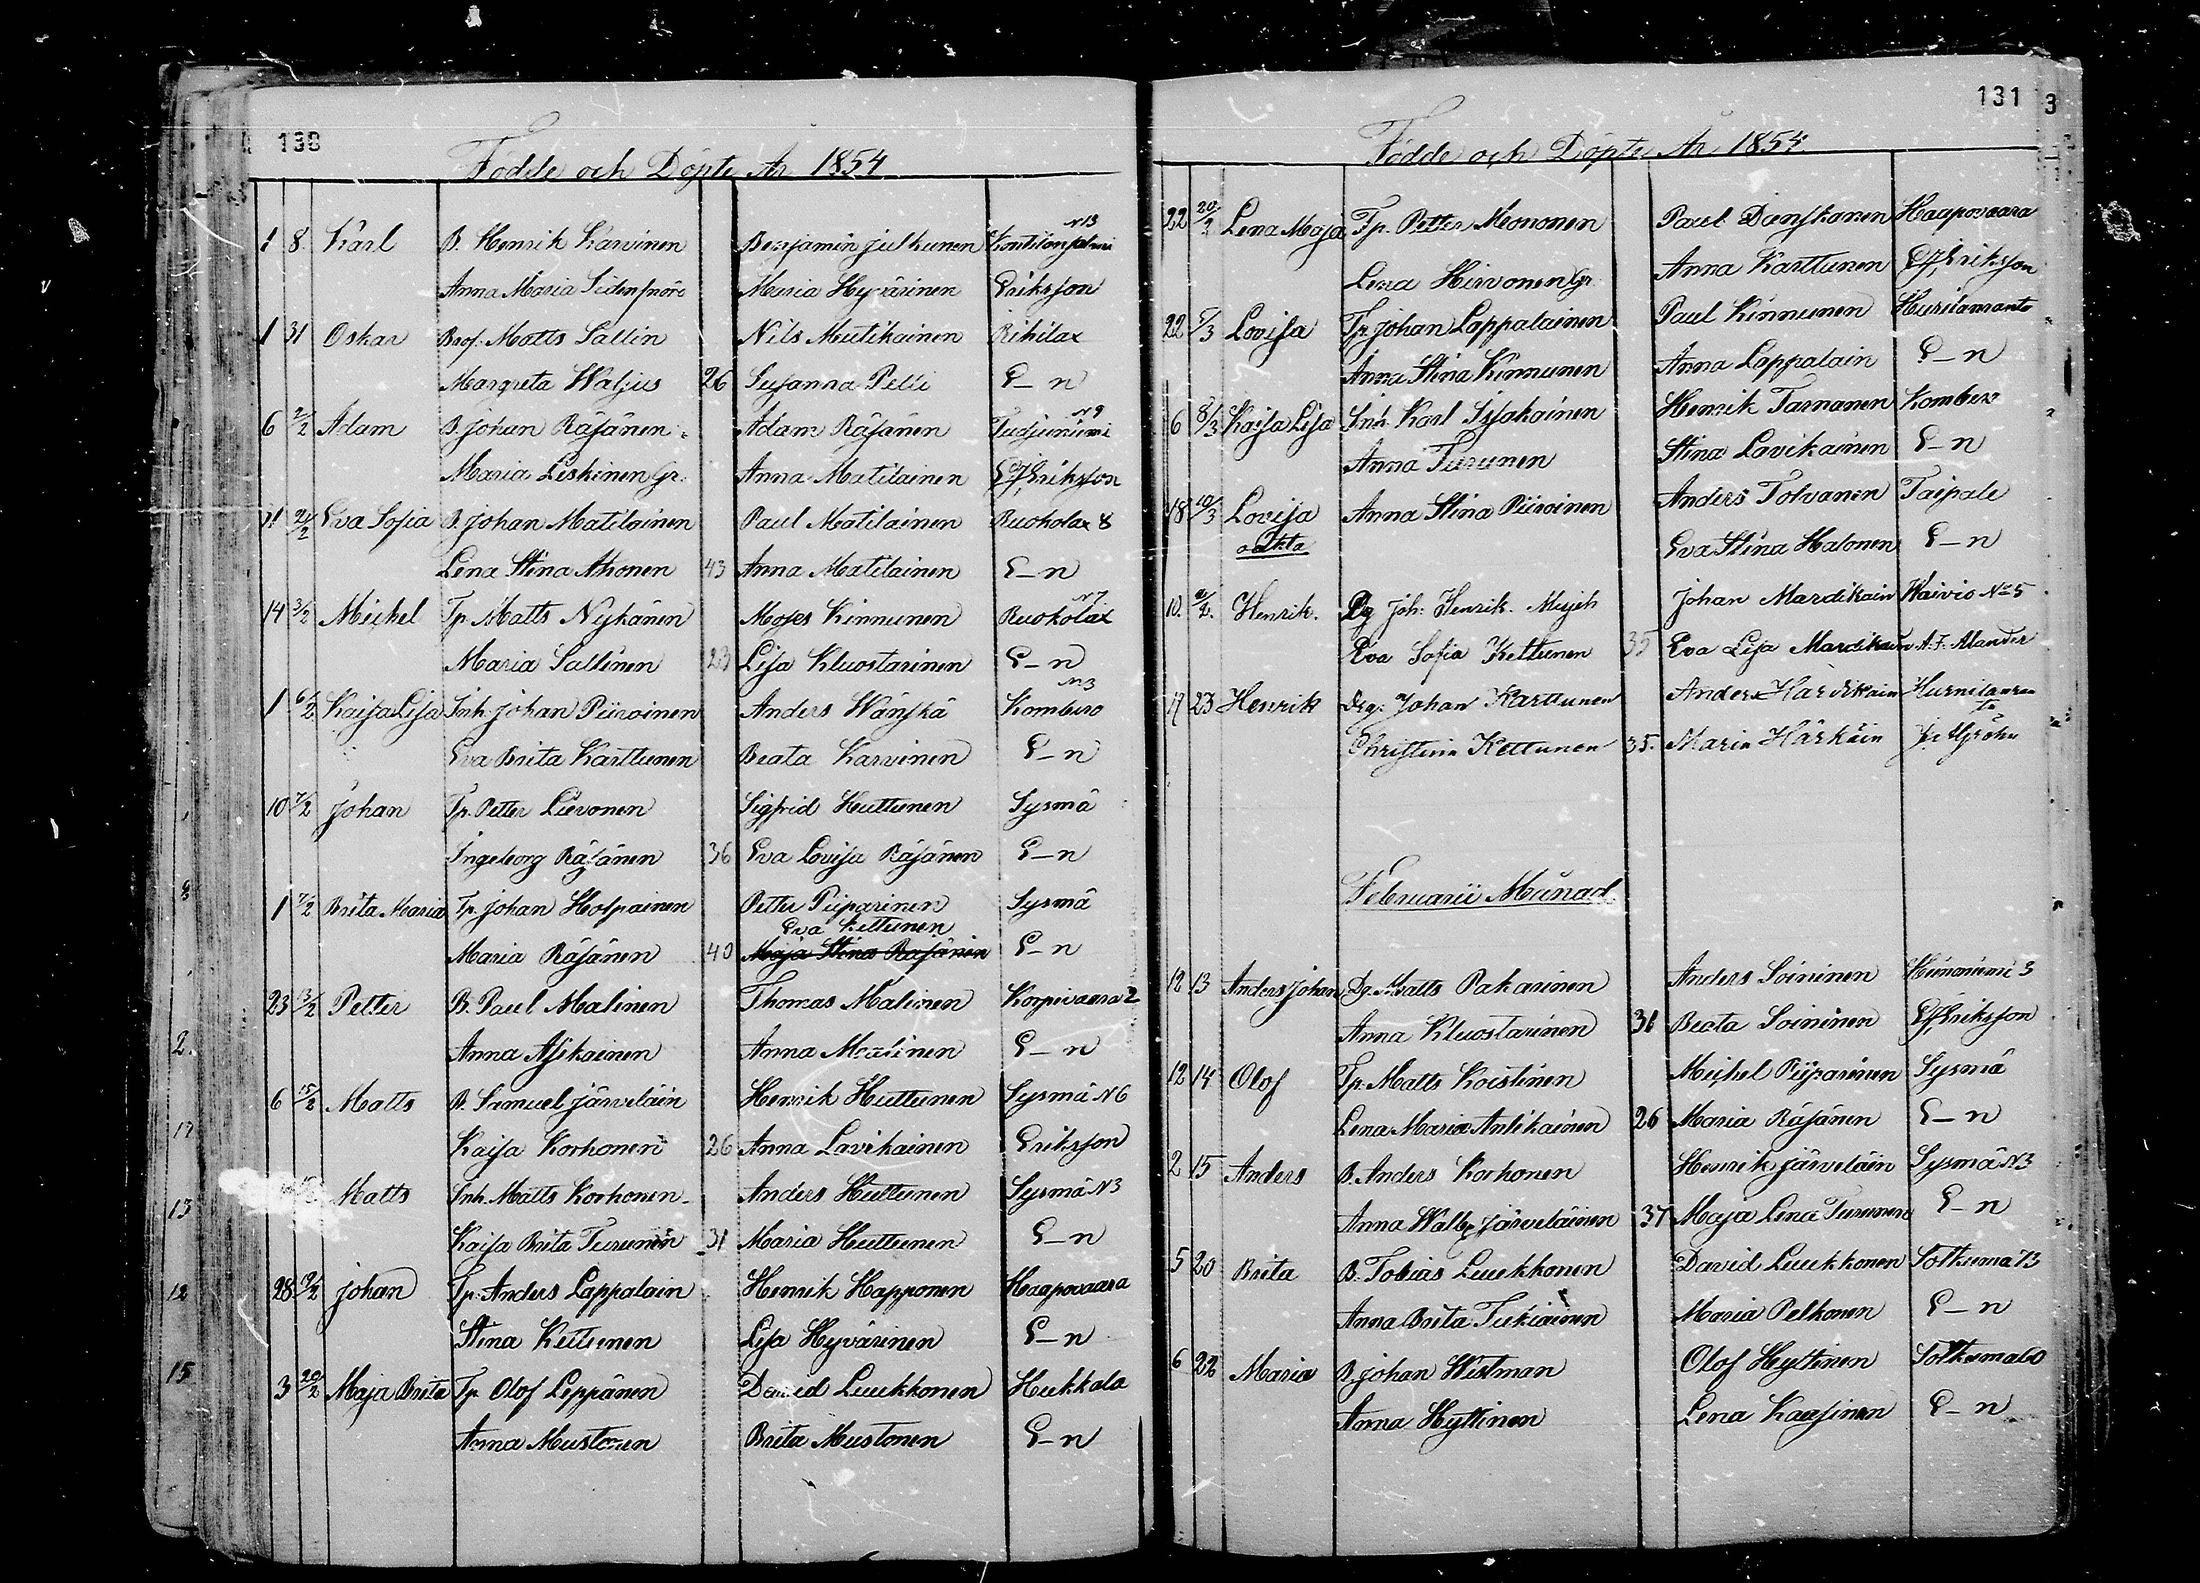 130
Födde och Döpte År 1854
1 8. Karl B. Henrik Karvinen Benjamin Julkunen N13 Kontilonsalmi
Anna Maria Maria Hyvärinen Eriksson
1 31 Oskar Prof. Matts Sallin Nils Mutikainen Rikilax
Margreta Waljus 26 Susanna Pelli E–n
6 2/2 Adam B. Johan Räsänen Adam Räsänen N9
Maria Leskinen Gr. Anna Matilainen Ef Eriksson
11 2/2 Eva Sofia B. Johan Matilainen Paul Matilainen Ruokolax 8
Lena Stina Ahonen 43 Anna Matilainen E–n
14 3/2 Michel Tp. Matts Nykänen Moses Kinnunen N7 Ruokolax
Maria Sallinen 23 Lisa Kluostarinen E–n
1 6/2 Kaisa Lisa Inh. Johan Piiroinen Anders Wänskä N3 Kombero
Eva Brita Karttunen Beata Karvinen E–n
10 7/2 Johan Tp. Petter Lievonen Sigfrid Huttunen Sysmä
Ingeborg Räsänen 36 Eva Lovisa Räsänen E–n
1 7/2 Brita Maria Tp. Johan Holpainen Petter Piiparinen Sysmä
Eva Kettunen
Maria Räsänen 40 Maja Stina Räsänen E–n
23 13/2 Petter B. Paul Malinen Thomas Malinen Korpivaara 2
Anna Asikainen Anna Malinen E–n
6 15/2 Matts B. Samuel Järveläin Henrik Huttunen Sysmä N6
Kaisa Korhonen 26 Anna Lavikainen Eriksson
Matts Inh. Matts Korhonen Anders Huttunen Sysmä N3
Kaisa Brita Turunen 31 Maria Huttunen E–n
28 19/2 Johan Tp. Anders Lappalain Henrik Happonen Haapovaara
Stina Kettunen Lisa Hyvärinen E–n
3 20/2 Maja Brita Tp Olof Leppänen David Luukkonen Hukkala
Anna Mustonen Brita Mustonen E–n
131
Födde och Döpte År 1854
22 20/2 Lena Maja Tp. Petter Mononen Paul Danskanen Haapovaara
Lena Hirvonen Gr. Anna Karttunen Ef Eriksson
22 5/3 Lovisa Tp. Johan Lappalainen Paul Kinnunen
Anna Stina Kinnunen Anna Lappalain E–n
6 8/3 Kaisa Lisa Inh. Karl Sysokainen Henrik Tarnanen Kombero
Anna Turunen Stina Lavikainen E–n
18 10/3 Lovisa Anna Stina Piiroinen Anders Tolvanen Taipale
oäkta Eva Stina Halonen E–n
10. Henrik. Dg Joh. Henrik. Johan Mardikain Kaivio No 5
Eva Sofia Kettunen 35 Eva Lisa Mardikain A. F. Alander
17 23 Henrik Drg. Johan Karttunen Anders
Christina Kettunen 35. Maria Härkäin
Februarii Månad.
12 13 Anders Johan Dg. Matts Pakarinen Anders Soininen 3
Anna Kluostarinen 31 Beata Soininen Ef Eriksson
12 14 Olof Tp. Matts Koistinen Michel Piiparinen Sysmä
Lena Maria Antikainen 26 Maria Räsänen E–n
2 15 Anders B. Anders Korhonen Henrik Järveläin Sysmä N3
Anna Walb. Järveläinen 37 Maja Lena Turunen E–n
5 20 Brita B. Tobias Luukkonen David Luukkonen Sotkuma 13
Anna Brita Tukiainen Maria Pelkonen E–n
6 22 Maria B. Johan Wistman Olof Hyttinen
Anna Hyttinen Lena Kaasinen E–n